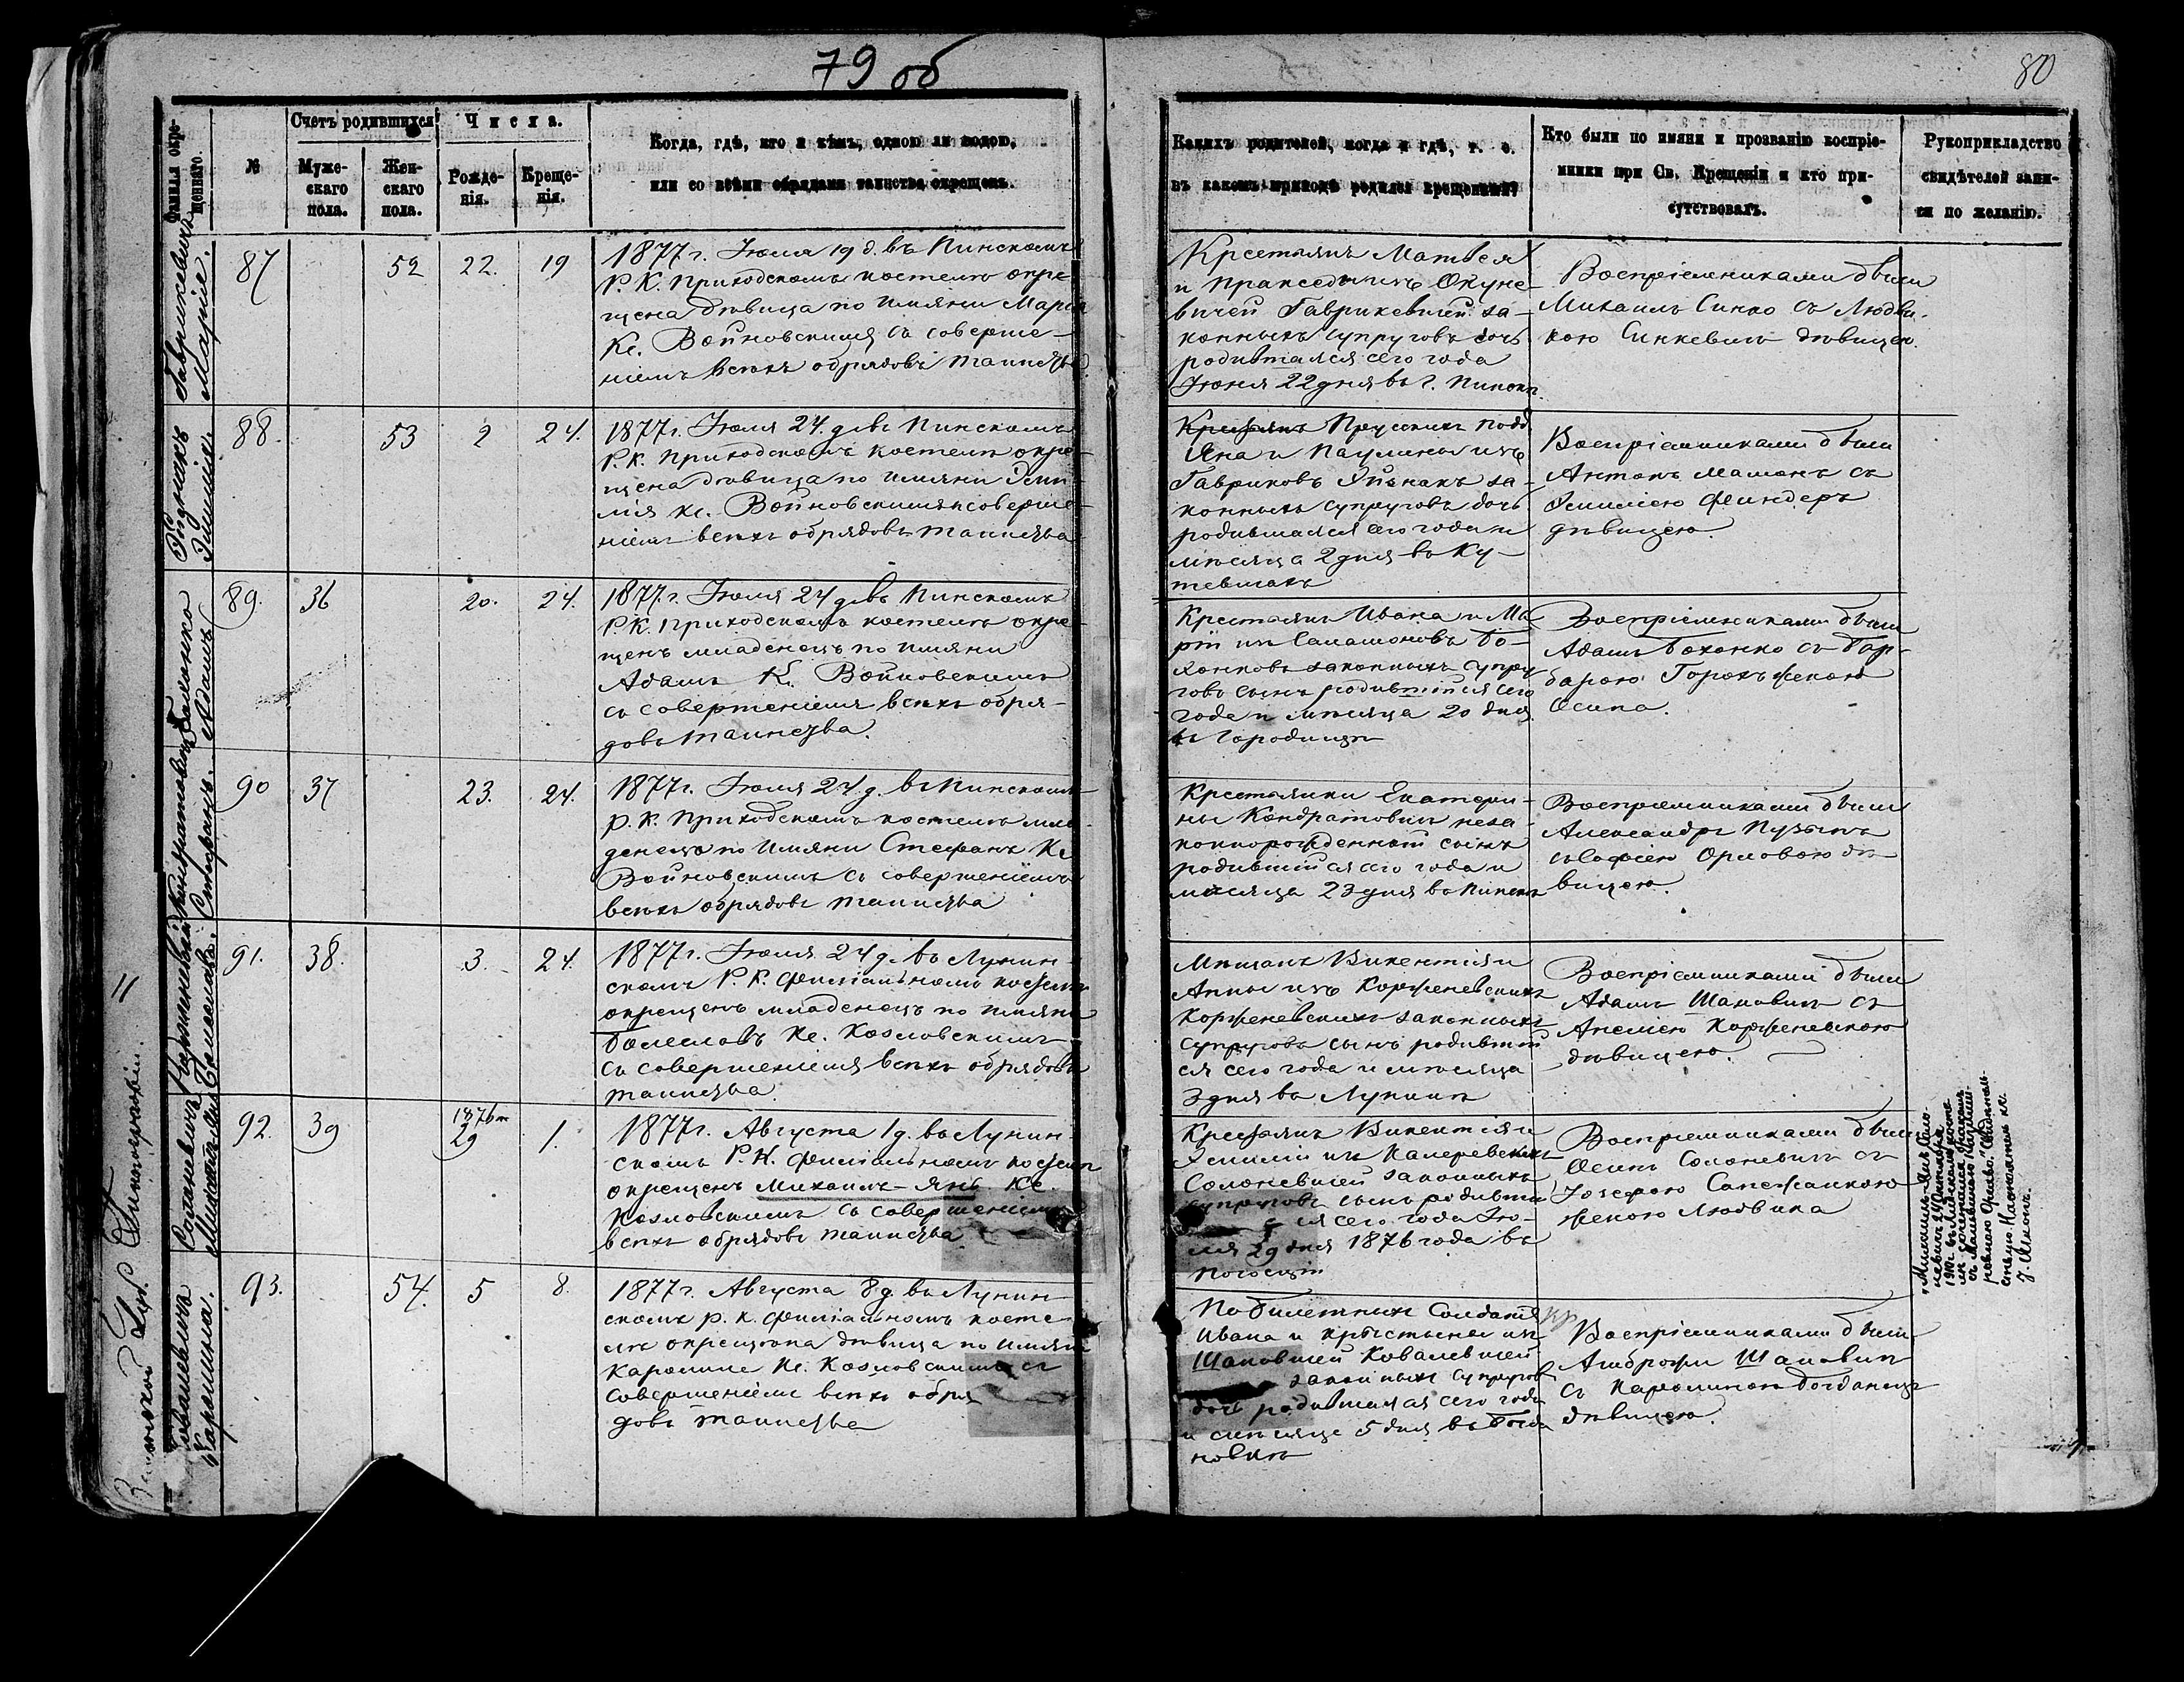 79 об
80
Фамилія окре-
щеннаго.
№
Счетъ родившихся
Муже-
скаго
пола.
Жен-
скаго
пола.
Числа.
Рожде-
нія.
Креще-
нія.
Когда, гдѣ, кто и кѣмъ, одною ли водою,
или со всѣми обрядами таинства окрещенъ.
Какихъ родителей, когда и гдѣ, т. е.
въ какомъ приходѣ родился крещенный?
Кто были по имяни и прозванію воспріе-
мники при Св. Крещеніи и кто при-
сутствовалъ.
Рукоприкладство
свидѣтелей запи-
си по желанію.
Гаврикевичъ
Марія.
87
52
22.
19
1877 г. Іюля 19 д. въ Пинскомъ
Р. К. Приходскомъ костелѣ окре-
щена дѣвица по имяни Марія
Кс. Войновскимъ съ соверше-
ніемъ всѣхъ обрядовъ таинства.
Крестьянъ Матвея
и Пракседы изъ Окуне-
вичей Гаврикевичей за-
конныхъ супруговъ дочь
родившаяся сего года
Іюня 22 дня въ г. Пинскѣ.
Воспріемниками были
Михаилъ Синко съ Людви-
кою Синкевичъ дѣвицею.
Эмилія.
88.
53
2
24.
1877 г. Іюля 24 д. въ Пинскомъ
Р. К. Приходскомъ костелѣ окре-
щена дѣвица по имяни Эми-
лія кс. Войновскимъ соверше-
ніемъ всѣхъ обрядовъ таинства
Крестьянъ Прускихъ подд
Яна и Паулины изъ
Гавриковъ за-
конныхъ супруговъ дочь
родившаяся сего года и
мѣсяца 2 дня въ Ку-
тевичахъ
Воспріемниками были
Антонъ Маманъ съ
Эмиліею Финдеръ
дѣвицею.
Бахонко
Адамъ
89.
36
20.
24.
1877 г. Іюля 24 д. въ Пинскомъ
Р. К. Приходскомъ костелѣ окре-
щенъ младенецъ по имяни
Адамъ Кс. Войновскимъ
съ совершеніемъ всѣхъ обря-
довъ таинства.
Крестьянъ Ивана и Ма
ріи изъ Саламоновъ Бо-
хонковъ законныхъ супру
говъ сынъ родившійся сего
года и мѣсяца 20 дня
въ Городищѣ
Воспріемниками были
Адамъ Бохонко съ Вар-
варою Горохъ женою
Осипа.
Кондратовичъ
Стефанъ.
90
37
23.
24.
1877 г. Іюля 24 д. въ Пинскомъ
Р. К. Приходскомъ костелѣ мла-
денецъ по имяни Стефанъ Кс
Войновскимъ съ совершеніемъ
всѣхъ обрядовъ таинства
Крестьянки Екатери-
ны Кондратовичъ неза-
коннорожденный сынъ
родившійся сего года и
мѣсяца 23 дня въ Пинскѣ
Воспріемниками были
Александръ Пузынъ
съ Софіею Орловою дѣ-
вицею.
Корженевскій
Болеславъ.
91.
38.
3.
24.
1877 г. Іюля 24 д. въ Лунин-
скомъ Р. К. Филіальномъ костелѣ
окрещенъ младенецъ по имяни
Болеславъ Кс. Козловскимъ
съ совершеніемъ всѣхъ обрядовъ
таинства.
Мѣщанъ Викентія и
Анны изъ Корженевскихъ
Корженевскихъ законныхъ
супруговъ сынъ родившій
ся сего года и мѣсяца
3 дня въ Лунинѣ
Воспріемниками были
Адамъ Шаковичъ съ
Анеліею Корженевскою
дѣвицею.
Солоневичъ
Михаилъ-Янъ
92.
39
1876 г
29
1.
1877 г. Августа 1 д. въ Лунин-
скомъ Р. К. Филіальномъ костелѣ
окрещенъ Михаилъ-Янъ Кс.
Козловскимъ съ совершеніемъ
всѣхъ обрядовъ таинства
Крестьянъ Викентія и
Эмиліи изъ
Солоневичей законныхъ
супруговъ сынъ родивші
ся сего года Ію-
ля 29 дня 1876 года въ
Погостѣ
Воспріемниками были
Осипъ Солоневичъ съ
Іозефою
женою Людвика
Ковалевичъ
Каролина.
93.
54.
5
8.
1877 г. Августа 8 д. въ Лунин-
скомъ р. к. филіальномъ косте-
лѣ окрещена дѣвица по имяни
Каролина Кс. Козловскимъ съ
совершеніемъ всѣхъ обря
довъ таинства
По билетнихъ Солдатъ
Ивана и Крыстыны изъ
Шаковичей Ковалевичей
законныхъ супругов
дочь родившаяся сего года
и мѣсяца 5 дня въ Богда
новкѣ
Воспріемниками были
Амброжи Шаковичъ
съ Каролиною Богданецъ
дѣвицею.